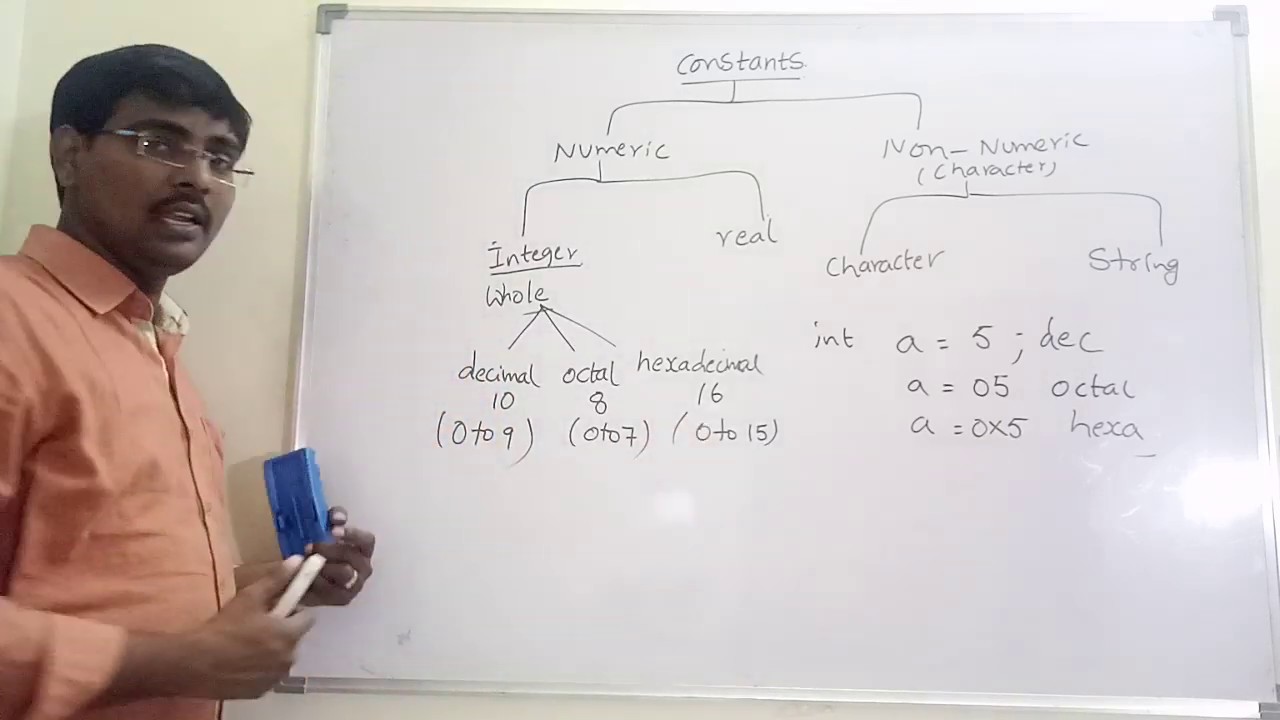 Constants
Numeric
Non-Numeric
(Character)
Integer
real
Whole
Character
String
decimal octal hexadecimal
10 8 16
(0 to 9) (0 to 7) (0 to 15)
int a = 5 ; dec
a = 05 octal
a = 0x5 hexa